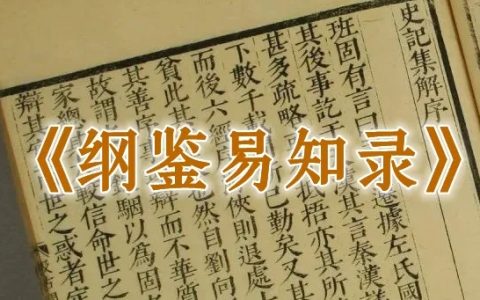 《纲鉴易知录》
史記集解序
班固有言曰遷據左氏國
其後事訖于漢其言秦漢
甚多疏略捂亦其所
下數千載已勤矣又其
而後六經俠則退處
貧此其也然自劉向
其善序辯而不華質
故謂駰以為固
家總較信命世之
辯其世之惑者